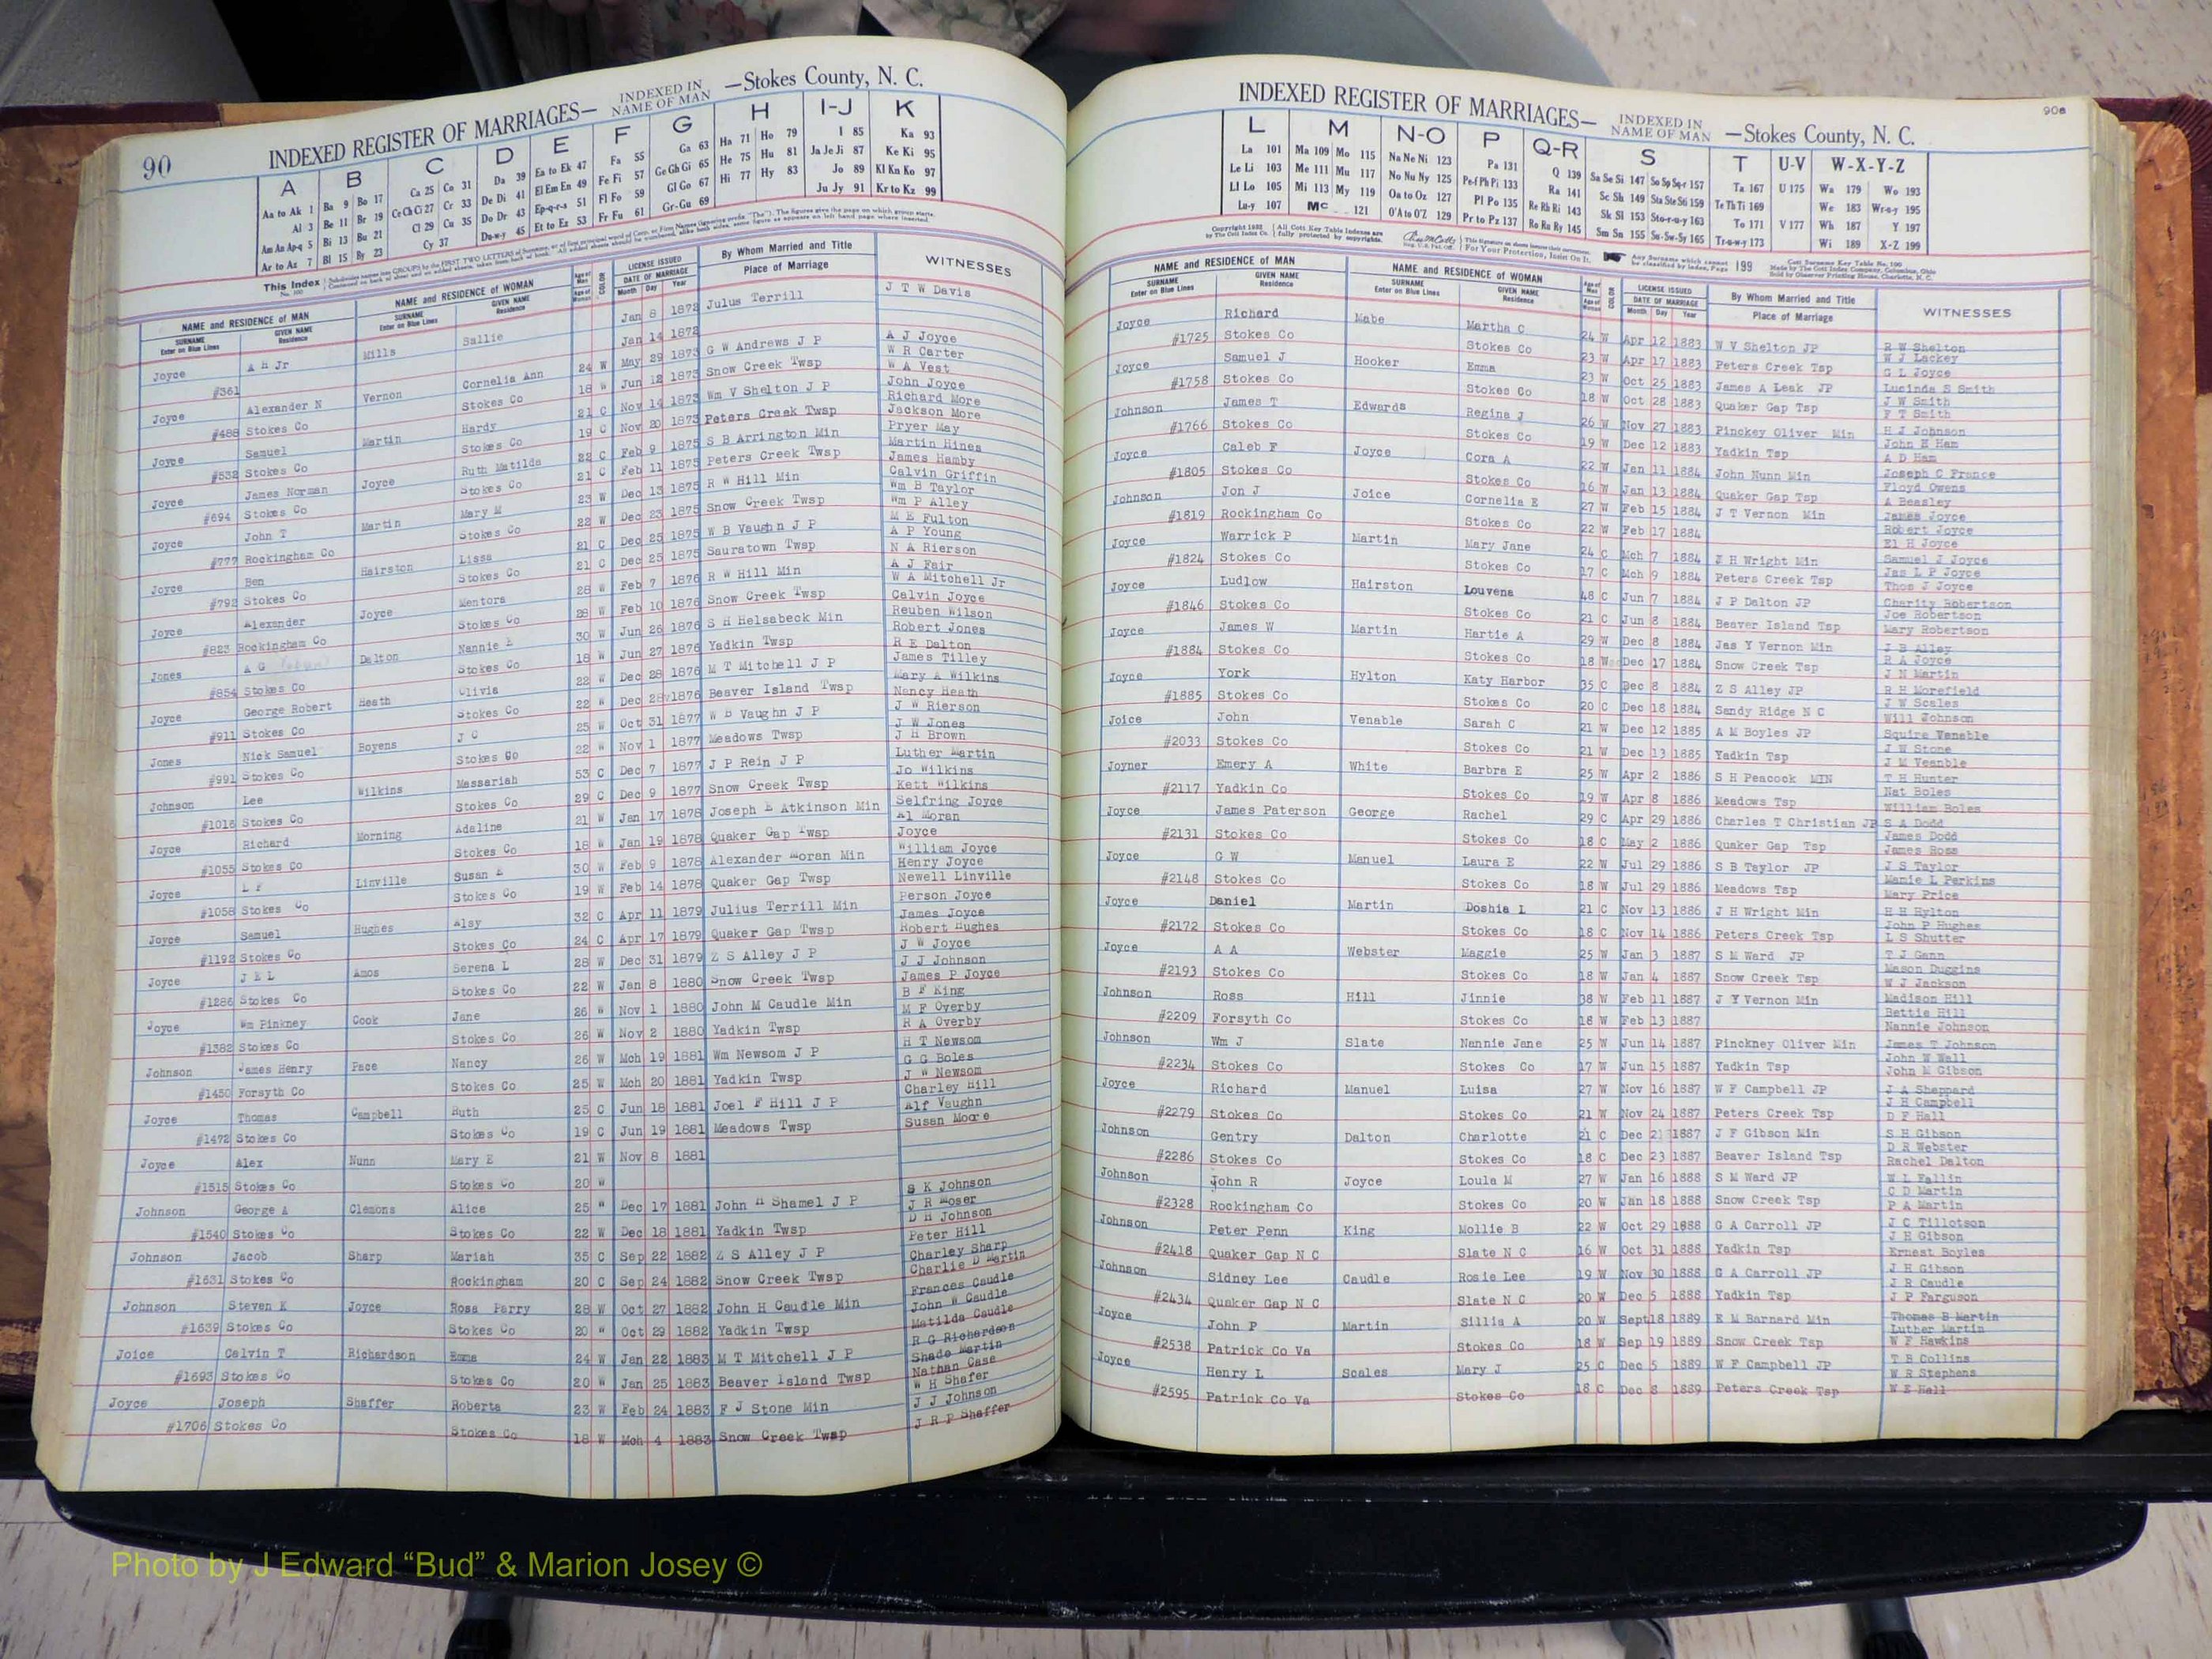 90
INDEXED REGISTER OF MARRIAGES— INDEXED IN NAME OF MAN —Stokes County, N. C.
A B C D E F G H I-J K
Aa to Ak 1 Ba 9 Bo 17 Ca 25 Co 31 Da 39 Ea to Ek 47 Fa 55 Ga 63 Ha 71 Ho 79 I 85 Ka 93
Al 3 Be 11 Br 19 Ce Ch Ci 27 Cr 33 De Di 41 El Em En 49 Fe Fi 57 Ge Gh Gi 65 He 75 Hu 81 Ja Je Ji 87 Ke Ki 95
Am An Ap-q 5 Bi 13 Bu 21 Cl 29 Cu 35 Do Dr 43 Ep-q-r-s 51 Fl Fo 59 Gl Go 67 Hi 77 Hy 83 Jo 89 Kl Kn Ko 97
Ar to Az 7 Bl 15 By 23 Cy 37 Du-w-y 45 Et to Ez 53 Fr Fu 61 Gr-Gu 69 Ju Jy 91 Kr to Kz 99
NAME and RESIDENCE of MAN NAME and RESIDENCE of WOMAN LICENSE ISSUED By Whom Married and Title WITNESSES
SURNAME Enter on Blue Lines GIVEN NAME Residence SURNAME Enter on Blue Lines GIVEN NAME Residence COLOR DATE OF MARRIAGE Month Day Year Place of Marriage
Joyce A H Jr Mills Sallie Jan 8 1872 Julus Terrill J T W Davis
#361 Jan 14 1872
Joyce Alexander N Vernon Cornelia Ann 24 W May 29 1873 G W Andrews J P A J Joyce
W R Carter
#488 Stokes Co Stokes Co 18 W Jun 12 1873 Snow Creek Twsp W A Vest
Joyce Samuel Martin Hardy 21 C Nov 14 1873 Wm V Shelton J P John Joyce
Richard More
#532 Stokes Co Stokes Co 19 C Nov 20 1873 Peters Creek Twsp Jackson More
Joyce James Norman Joyce Ruth Matilda 22 C Feb 9 1875 S B Arrington Min Pryer May
Martin Hines
#694 Stokes Co Stokes Co 21 C Feb 11 1875 Peters Creek Twsp James Hamby
Joyce John T Martin Mary M 23 W Dec 13 1875 R W Hill Min Calvin Griffin
Wm B Taylor
#777 Rockingham Co Stokes Co 22 W Dec 23 1875 Snow Creek Twsp Wm P Alley
Joyce Ben Hairston Lissa 21 C Dec 25 1875 W B Vaughn J P M E Fulton
A P Young
#792 Stokes Co Stokes Co 21 C Dec 25 1875 Sauratown Twsp N A Rierson
Joyce Alexander Joyce Mentora 28 W Feb 7 1876 R W Hill Min A J Fair
W A Mitchell Jr
#823 Rockingham Co Stokes Co 28 W Feb 10 1876 Snow Creek Twsp Calvin Joyce
Jones A G Dalton Nannie E 30 W Jun 26 1876 S H Helsabeck Min Reuben Wilson
Robert Jones
#854 Stokes Co Stokes Co 18 W Jun 27 1876 Yadkin Twsp R E Dalton
Joyce George Robert Heath Olivia 22 W Dec 28 1876 M T Mitchell J P James Tilley
Mary A Wilkins
#911 Stokes Co Stokes Co 22 W Dec 28 1876 Beaver Island Twsp Nancy Heath
Jones Nick Samuel Boyens J C 25 W Oct 31 1877 W B Vaughn J P J W Rierson
J W Jones
#991 Stokes Co Stokes Co 22 W Nov 1 1877 Meadows Twsp J H Brown
Johnson Lee Wilkins Messariah 53 C Dec 7 1877 J P Rein J P Luther Martin
Jo Wilkins
#1016 Stokes Co Stokes Co 29 C Dec 9 1877 Snow Creek Twsp Kett Wilkins
Joyce Richard Morning Adaline 21 W Jan 17 1878 Joseph E Atkinson Min Selfring Joyce
Al Moran
#1055 Stokes Co Stokes Co 18 W Jan 19 1878 Quaker Gap Twsp Joyce
Joyce L F Linville Susan E 30 W Feb 9 1878 Alexander Moran Min William Joyce
Henry Joyce
#1058 Stokes Co Stokes Co 19 W Feb 14 1878 Quaker Gap Twsp Newell Linville
Joyce Samuel Hughes Alsy 32 C Apr 11 1879 Julius Terrill Min Person Joyce
James Joyce
#1192 Stokes Co Stokes Co 24 C Apr 17 1879 Quaker Gap Twsp Robert Hughes
Joyce J E L Amos Serena L 28 W Dec 31 1879 Z S Alley J P J W Joyce
J J Johnson
#1286 Stokes Co Stokes Co 22 W Jan 8 1880 Snow Creek Twsp James P Joyce
Joyce Wm Pinkney Cook Jane 26 W Nov 1 1880 John M Caudle Min B F King
M F Overby
#1382 Stokes Co Stokes Co 26 W Nov 2 1880 Yadkin Twsp R A Overby
Johnson James Henry Pace Nancy 26 W Mch 19 1881 Wm Newsom J P H T Newsom
G G Boles
#1450 Forsyth Co Stokes Co 25 W Mch 20 1881 Yadkin Twsp J W Newsom
Joyce Thomas Campbell Ruth 25 C Jun 18 1881 Joel F Hill J P Charley Hill
Alf Vaughn
#1472 Stokes Co Stokes Co 19 C Jun 19 1881 Meadows Twsp Susan Moore
Joyce Alex Nunn Mary E 21 W Nov 8 1881
#1515 Stokes Co Stokes Co 20 W
Johnson George A Clemons Alice 25 W Dec 17 1881 John H Shamel J P S K Johnson
J R Moser
#1540 Stokes Co Stokes Co 22 W Dec 18 1881 Yadkin Twsp D H Johnson
Johnson Jacob Sharp Mariah 35 C Sep 22 1882 Z S Alley J P Peter Hill
Charley Sharp
#1631 Stokes Co Rockingham 20 C Sep 24 1882 Snow Creek Twsp Charlie D Martin
Johnson Steven K Joyce Rosa Perry 28 W Oct 27 1882 John H Caudle Min Frances Caudle
John W Caudle
#1639 Stokes Co Stokes Co 20 W Oct 29 1882 Yadkin Twsp Matilda Caudle
Joice Calvin T Richardson Emma 24 W Jan 22 1883 M T Mitchell J P R G Richardson
Shade Martin
#1693 Stokes Co Stokes Co 20 W Jan 25 1883 Beaver Island Twsp Nathan Case
Joyce Joseph Shaffer Roberta 23 W Feb 24 1883 F J Stone Min W H Shafer
J J Johnson
#1706 Stokes Co Stokes Co 18 W Mch 4 1883 Snow Creek Twsp J R P Shaffer
INDEXED REGISTER OF MARRIAGES— INDEXED IN NAME OF MAN —Stokes County, N. C.
L M N-O P Q-R S T U-V W-X-Y-Z
La 101 Ma 109 Mo 115 Na Ne Ni 123 Pa 131 Q 139 Sa Se Si 147 So Sp Sq-r 157 Ta 167 U 175 Wa 179 Wo 193
Le Li 103 Me 111 Mu 117 No Nu Ny 125 Pe-f Ph Pi 133 Ra 141 Sc Sh 149 Sta Ste Sti 159 Te Th Ti 169 We 183 Wr-u-y 195
Ll Lo 105 Mi 113 My 119 Oa to Oz 127 Pl Po 135 Re Rh Ri 143 Sk Sl 153 Sto-r-u-y 163 To 171 V 177 Wh 187 Y 197
Lu-y 107 Mc 121 O'A to O'Z 129 Pr to Pz 137 Ro Ru Ry 145 Sm Sn 155 Su-Sw-Sy 165 Tr-u-w-y 173 Wi 189 X-Z 199
NAME and RESIDENCE of MAN NAME and RESIDENCE of WOMAN LICENSE ISSUED By Whom Married and Title WITNESSES
SURNAME Enter on Blue Lines GIVEN NAME Residence SURNAME Enter on Blue Lines GIVEN NAME Residence COLOR DATE OF MARRIAGE Month Day Year Place of Marriage
Joyce Richard Mabe Martha C 24 W Apr 12 1883 W V Shelton JP R W Shelton
W J Lackey
#1725 Stokes Co Stokes Co 23 W Apr 17 1883 Peters Creek Tsp G L Joyce
Joyce Samuel J Hooker Emma 23 W Oct 25 1883 James A Leak JP Lucinda S Smith
J W Smith
#1758 Stokes Co Stokes Co 18 W Oct 28 1883 Quaker Gap Tsp F T Smith
Johnson James T Edwards Regina J 26 W Nov 27 1883 Pinckey Oliver Min H J Johnson
John E Ham
#1766 Stokes Co Stokes Co 19 W Dec 12 1883 Yadkin Tsp A D Ham
Joyce Caleb F Joyce Cora A 22 W Jan 11 1884 John Nunn Min Joseph C France
Floyd Owens
#1805 Stokes Co Stokes Co 16 W Jan 13 1884 Quaker Gap Tsp A Beasley
Johnson Jon J Joice Cornelia E 27 W Feb 15 1884 J T Vernon Min James Joyce
Robert Joyce
#1819 Rockingham Co Stokes Co 22 W Feb 17 1884 El H Joyce
Joyce Warrick P Martin Mary Jane 24 C Mch 7 1884 J H Wright Min Samuel J Joyce
Jas L P Joyce
#1824 Stokes Co Stokes Co 17 C Mch 9 1884 Peters Creek Tsp Thos J Joyce
Joyce Ludlow Hairston Louvena 48 C Jun 7 1884 J P Dalton JP Charity Robertson
Joe Robertson
#1846 Stokes Co Stokes Co 21 C Jun 8 1884 Beaver Island Tsp Mary Robertson
Joyce James W Martin Hartie A 29 W Dec 8 1884 Jas Y Vernon Min J B Alley
R A Joyce
#1884 Stokes Co Stokes Co 18 W Dec 17 1884 Snow Creek Tsp J N Martin
Joyce York Hylton Katy Harbor 35 C Dec 8 1884 Z S Alley JP R H Morefield
J W Scales
#1885 Stokes Co Stokes Co 20 C Dec 18 1884 Sandy Ridge N C Will Johnson
Joice John Venable Sarah C 21 W Dec 12 1885 A M Boyles JP Squire Venable
J W Stone
#2033 Stokes Co Stokes Co 21 W Dec 13 1885 Yadkin Tsp J M Veanble
Joyner Emery A White Barbra E 25 W Apr 2 1886 S H Peacock MIN T H Hunter
Nat Boles
#2117 Yadkin Co Stokes Co 19 W Apr 8 1886 Meadows Tsp William Boles
Joyce James Paterson George Rachel 29 C Apr 29 1886 Charles T Christian JP S A Dodd
James Dodd
#2131 Stokes Co Stokes Co 18 C May 2 1886 Quaker Gap Tsp James Ross
Joyce G W Manuel Laura E 22 W Jul 29 1886 S B Taylor JP J S Taylor
Manie L Perkins
#2148 Stokes Co Stokes Co 18 W Jul 29 1886 Meadows Tsp Mary Price
Joyce Daniel Martin Doshia L 21 C Nov 13 1886 J H Wright Min H H Hylton
John P Hughes
#2172 Stokes Co Stokes Co 18 C Nov 14 1886 Peters Creek Tsp L S Shutter
Joyce A A Webster Maggie 25 W Jan 3 1887 S M Ward JP T J Gann
Mason Duggins
#2193 Stokes Co Stokes Co 18 W Jan 4 1887 Snow Creek Tsp W J Jackson
Johnson Ross Hill Jinnie 38 W Feb 11 1887 J Y Vernon Min Madison Hill
Bettie Hill
#2209 Forsyth Co Stokes Co 18 W Feb 13 1887 Nannie Johnson
Johnson Wm J Slate Nannie Jane 25 W Jun 14 1887 Pinckney Oliver Min James T Johnson
John W Wall
#2234 Stokes Co Stokes Co 17 W Jun 15 1887 Yadkin Tsp John M Gibson
Joyce Richard Manuel Luisa 27 W Nov 16 1887 W F Campbell JP J A Sheppard
J H Campbell
#2279 Stokes Co Stokes Co 21 W Nov 24 1887 Peters Creek Tsp D F Hall
Johnson Gentry Dalton Charlotte 21 C Dec 21 1887 J F Gibson Min S H Gibson
D R Webster
#2286 Stokes Co Stokes Co 18 C Dec 23 1887 Beaver Island Tsp Rachel Dalton
Johnson John R Joyce Loula M 27 W Jan 16 1888 S M Ward JP W L Fallin
C D Martin
#2328 Rockingham Co Stokes Co 20 W Jan 18 1888 Snow Creek Tsp P A Martin
Johnson Peter Penn King Mollie B 22 W Oct 29 1888 G A Carroll JP J C Tillotson
J H Gibson
#2418 Quaker Gap N C Slate N C 16 W Oct 31 1888 Yadkin Tsp Ernest Boyles
Johnson Sidney Lee Caudle Rosie Lee 19 W Nov 30 1888 G A Carroll JP J H Gibson
J R Caudle
#2434 Quaker Gap N C Slate N C 20 W Dec 5 1888 Yadkin Tsp J P Farguson
Joyce John P Martin Sillis A 20 W Sept 18 1889 E M Barnard Min Thomas B Martin
Luther Martin
#2538 Patrick Co Va Stokes Co 18 W Sep 19 1889 Snow Creek Tsp W F Hawkins
Joyce Henry L Scales Mary J 25 C Dec 5 1889 W F Campbell JP T B Collins
W R Stephens
#2595 Patrick Co Va Stokes Co 18 C Dec 8 1889 Peters Creek Tsp W E Hall
Photo by J Edward “Bud” & Marion Josey ©